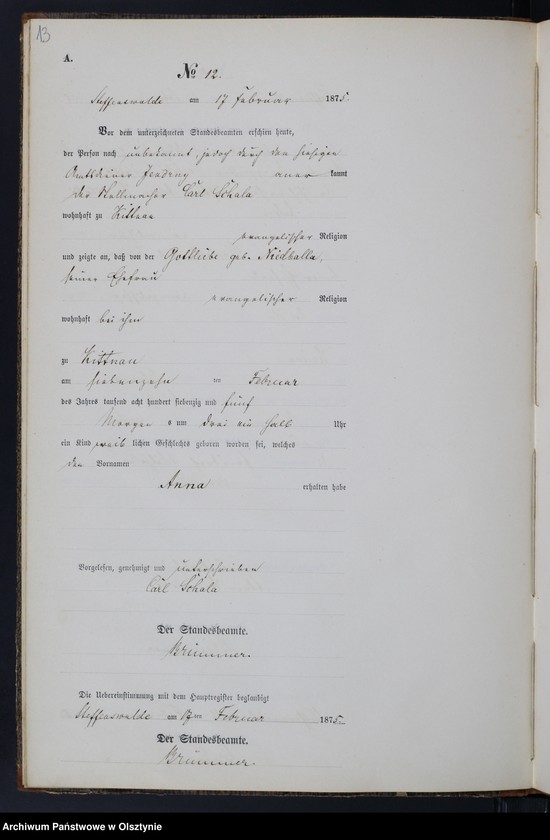 13
A.
No 12.
Steffenswalde am 17 Februar 1875.
Vor dem unterzeichneten Standesbeamten erschien heute,
der Person nach unbekannt, jedoch durch den hiesigen
Amtsdiener Jendrny aner kannt
der Carl Schala
wohnhaft zu Kittnau
evangelischer Religion
und zeigte an, daß von der Gottliebe geb. Niedballa,
seiner Ehefrau
evangelischer Religion
wohnhaft bei ihm
zu Kittnau
am siebenzehn ten Februar
des Jahres tausend acht hundert siebenzig und fünf
Morgens um drei ein halb Uhr
ein Kind weib lichen Geschlechts geboren worden sei, welches
den Vornamen
Anna erhalten habe
Vorgelesen, genehmigt und unterschrieben
Carl Schala
Der Standesbeamte.
Brümmer.
Die Uebereinstimmung mit dem Hauptregister beglaubigt
Steffenswalde am 17ten Februar 1875.
Der Standesbeamte.
Brümmer.
Archiwum Państwowe w Olsztynie